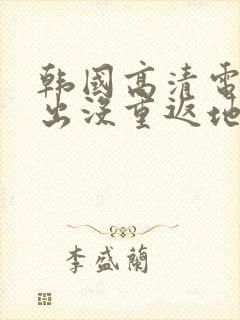 韩國高清電
出没重返地
李盛蘭